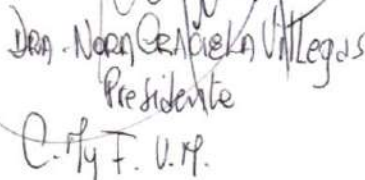 DRA. NORA GRACIELA Villegas
Presidente
C. M y F. V. M.